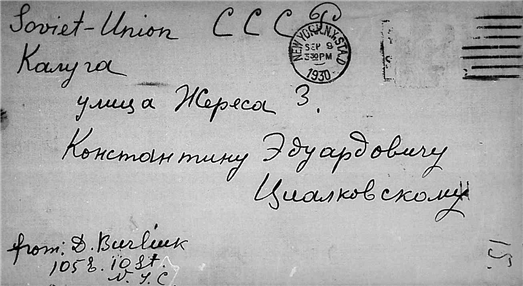 Soviet-Union СССР
NEW YORK, N.Y. STA. D
SEP 9
3-30 PM
1930
Калуга
улица Жореса 3.
Константину Эдуардовичу
Циалковскому
from: D. Burliuk
105 E. 10 St.
N. Y. C